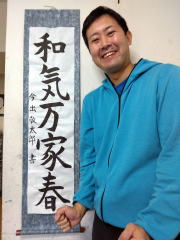 和気万家春
今出敬太郎書